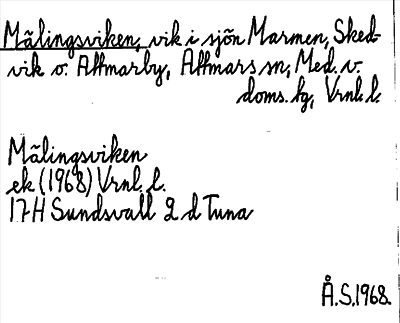 Målingsviken, vik i sjön Marmen, Sked-
vik o. Attmarby, Attmars sn, Med. v.
doms. tg, Vrnl. l.
Målingsviken
ek (1968) Vrnl. l.
17H Sundsvall 2 d Tuna
Å.S.1968.